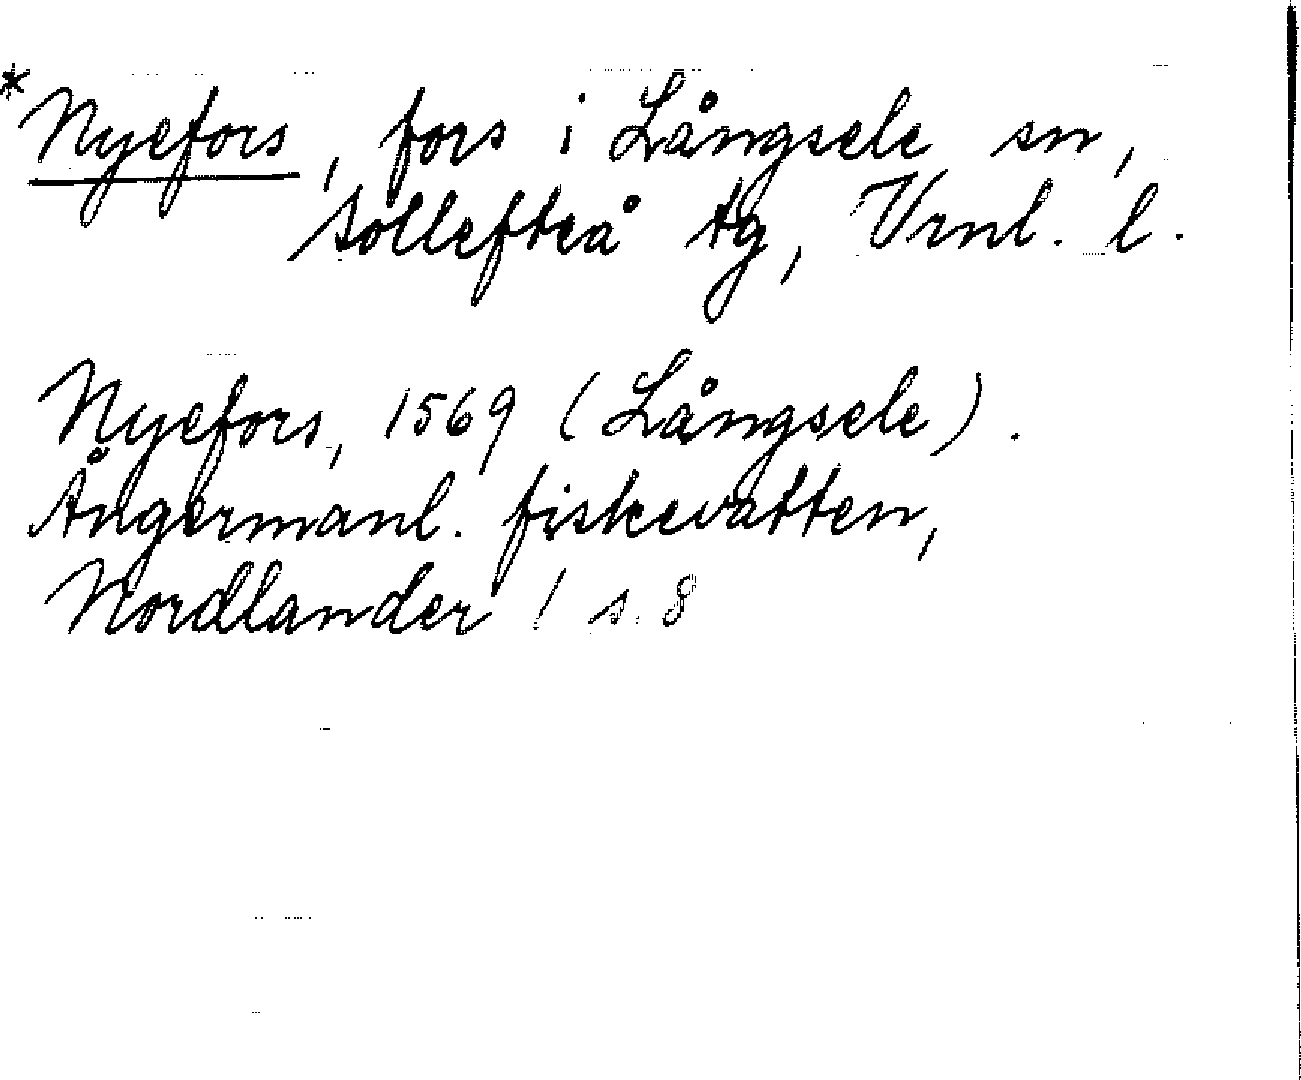 *Nyefors, fors i Långsele sn,
Sollefteå tg, Vrnl. l.
Nyefors, 1569 (Långsele).
Ångermanl. fiskevatten,
Nordlander / s. 8